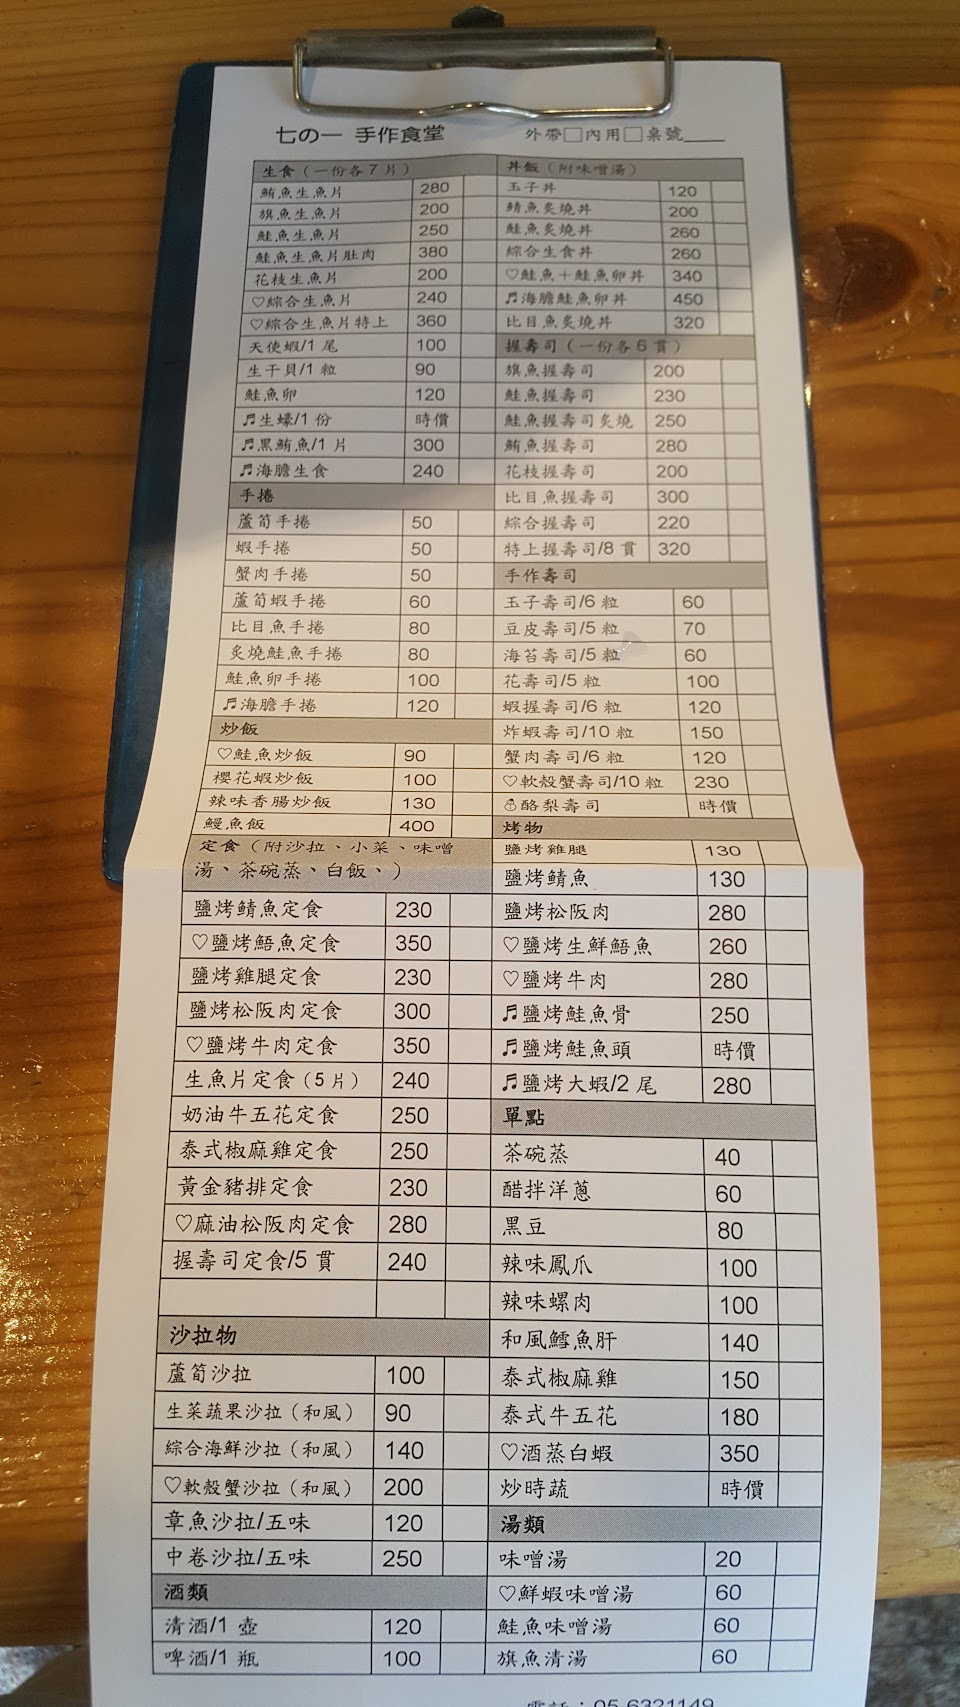 七の一 手作食堂
外帶□內用□桌號____
生食（一份各7片）
鮪魚生魚片 280
旗魚生魚片 200
鮭魚生魚片 250
鮭魚生魚片肚肉 380
花枝生魚片 200
♡綜合生魚片 240
♡綜合生魚片特上 360
天使蝦/1尾 100
生干貝/1粒 90
鮭魚卵 120
♬生蠔/1份 時價
♬黑鮪魚/1片 300
♬海膽生食 240
手捲
蘆筍手捲 50
蝦手捲 50
蟹肉手捲 50
蘆筍蝦手捲 60
比目魚手捲 80
炙燒鮭魚手捲 80
鮭魚卵手捲 100
♬海膽手捲 120
炒飯
♡鮭魚炒飯 90
櫻花蝦炒飯 100
辣味香腸炒飯 130
鰻魚飯 400
定食（附沙拉、小菜、味噌
湯、茶碗蒸、白飯、）
鹽烤鯖魚定食 230
♡鹽烤鯃魚定食 350
鹽烤雞腿定食 230
鹽烤松阪肉定食 300
♡鹽烤牛肉定食 350
生魚片定食（5片） 240
奶油牛五花定食 250
泰式椒麻雞定食 250
黃金豬排定食 230
♡麻油松阪肉定食 280
握壽司定食/5貫 240
沙拉物
蘆筍沙拉 100
生菜蔬果沙拉（和風） 90
綜合海鮮沙拉（和風） 140
♡軟殼蟹沙拉（和風） 200
章魚沙拉/五味 120
中卷沙拉/五味 250
酒類
清酒/1壺 120
啤酒/1瓶 100
丼飯（附味噌湯）
玉子丼 120
鯖魚炙燒丼 200
鮭魚炙燒丼 260
綜合生食丼 260
♡鮭魚＋鮭魚卵丼 340
♬海膽鮭魚卵丼 450
比目魚炙燒丼 320
握壽司（一份各6貫）
旗魚握壽司 200
鮭魚握壽司 230
鮭魚握壽司炙燒 250
鮪魚握壽司 280
花枝握壽司 200
比目魚握壽司 300
綜合握壽司 220
特上握壽司/8貫 320
手作壽司
玉子壽司/6粒 60
豆皮壽司/5粒 70
海苔壽司/5粒 60
花壽司/5粒 100
蝦握壽司/6粒 120
炸蝦壽司/10粒 150
蟹肉壽司/6粒 120
♡軟殼蟹壽司/10粒 230
☃酪梨壽司 時價
烤物
鹽烤雞腿 130
鹽烤鯖魚 130
鹽烤松阪肉 280
♡鹽烤生鮮鯃魚 260
♡鹽烤牛肉 280
♬鹽烤鮭魚骨 250
♬鹽烤鮭魚頭 時價
♬鹽烤大蝦/2尾 280
單點
茶碗蒸 40
醋拌洋蔥 60
黑豆 80
辣味鳳爪 100
辣味螺肉 100
和風鱈魚肝 140
泰式椒麻雞 150
泰式牛五花 180
♡酒蒸白蝦 350
炒時蔬 時價
湯類
味噌湯 20
♡鮮蝦味噌湯 60
鮭魚味噌湯 60
旗魚清湯 60
電話：05-6321149